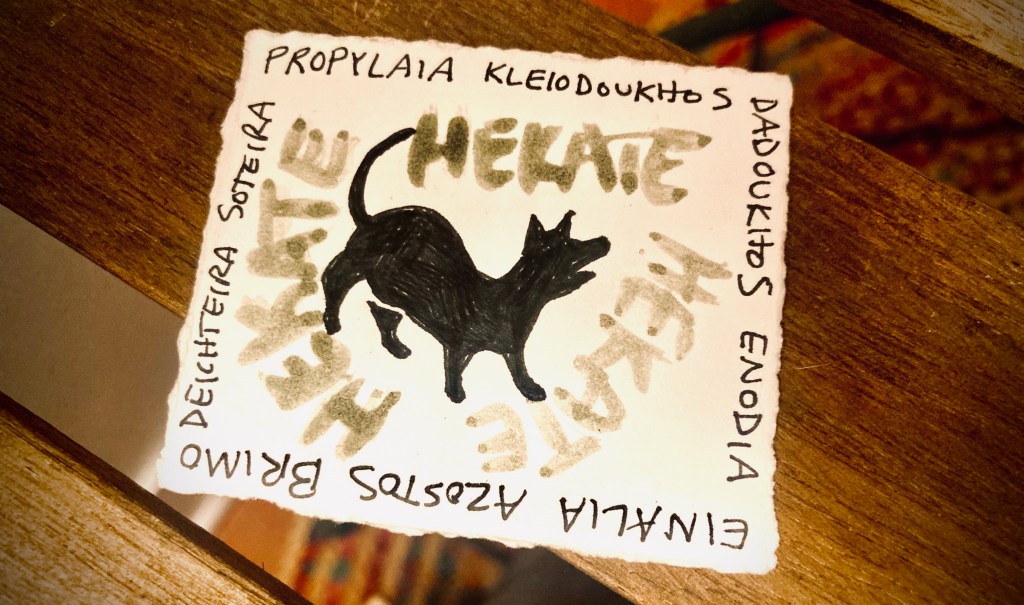 PROPYLAIA KLEIODOUKHOS
DADOUKHOS ENODIA
EINALIA AZOSTOS BRIMO
DEICHTEIRA SOTEIRA
HEKATE
HEKATE
HEKATE